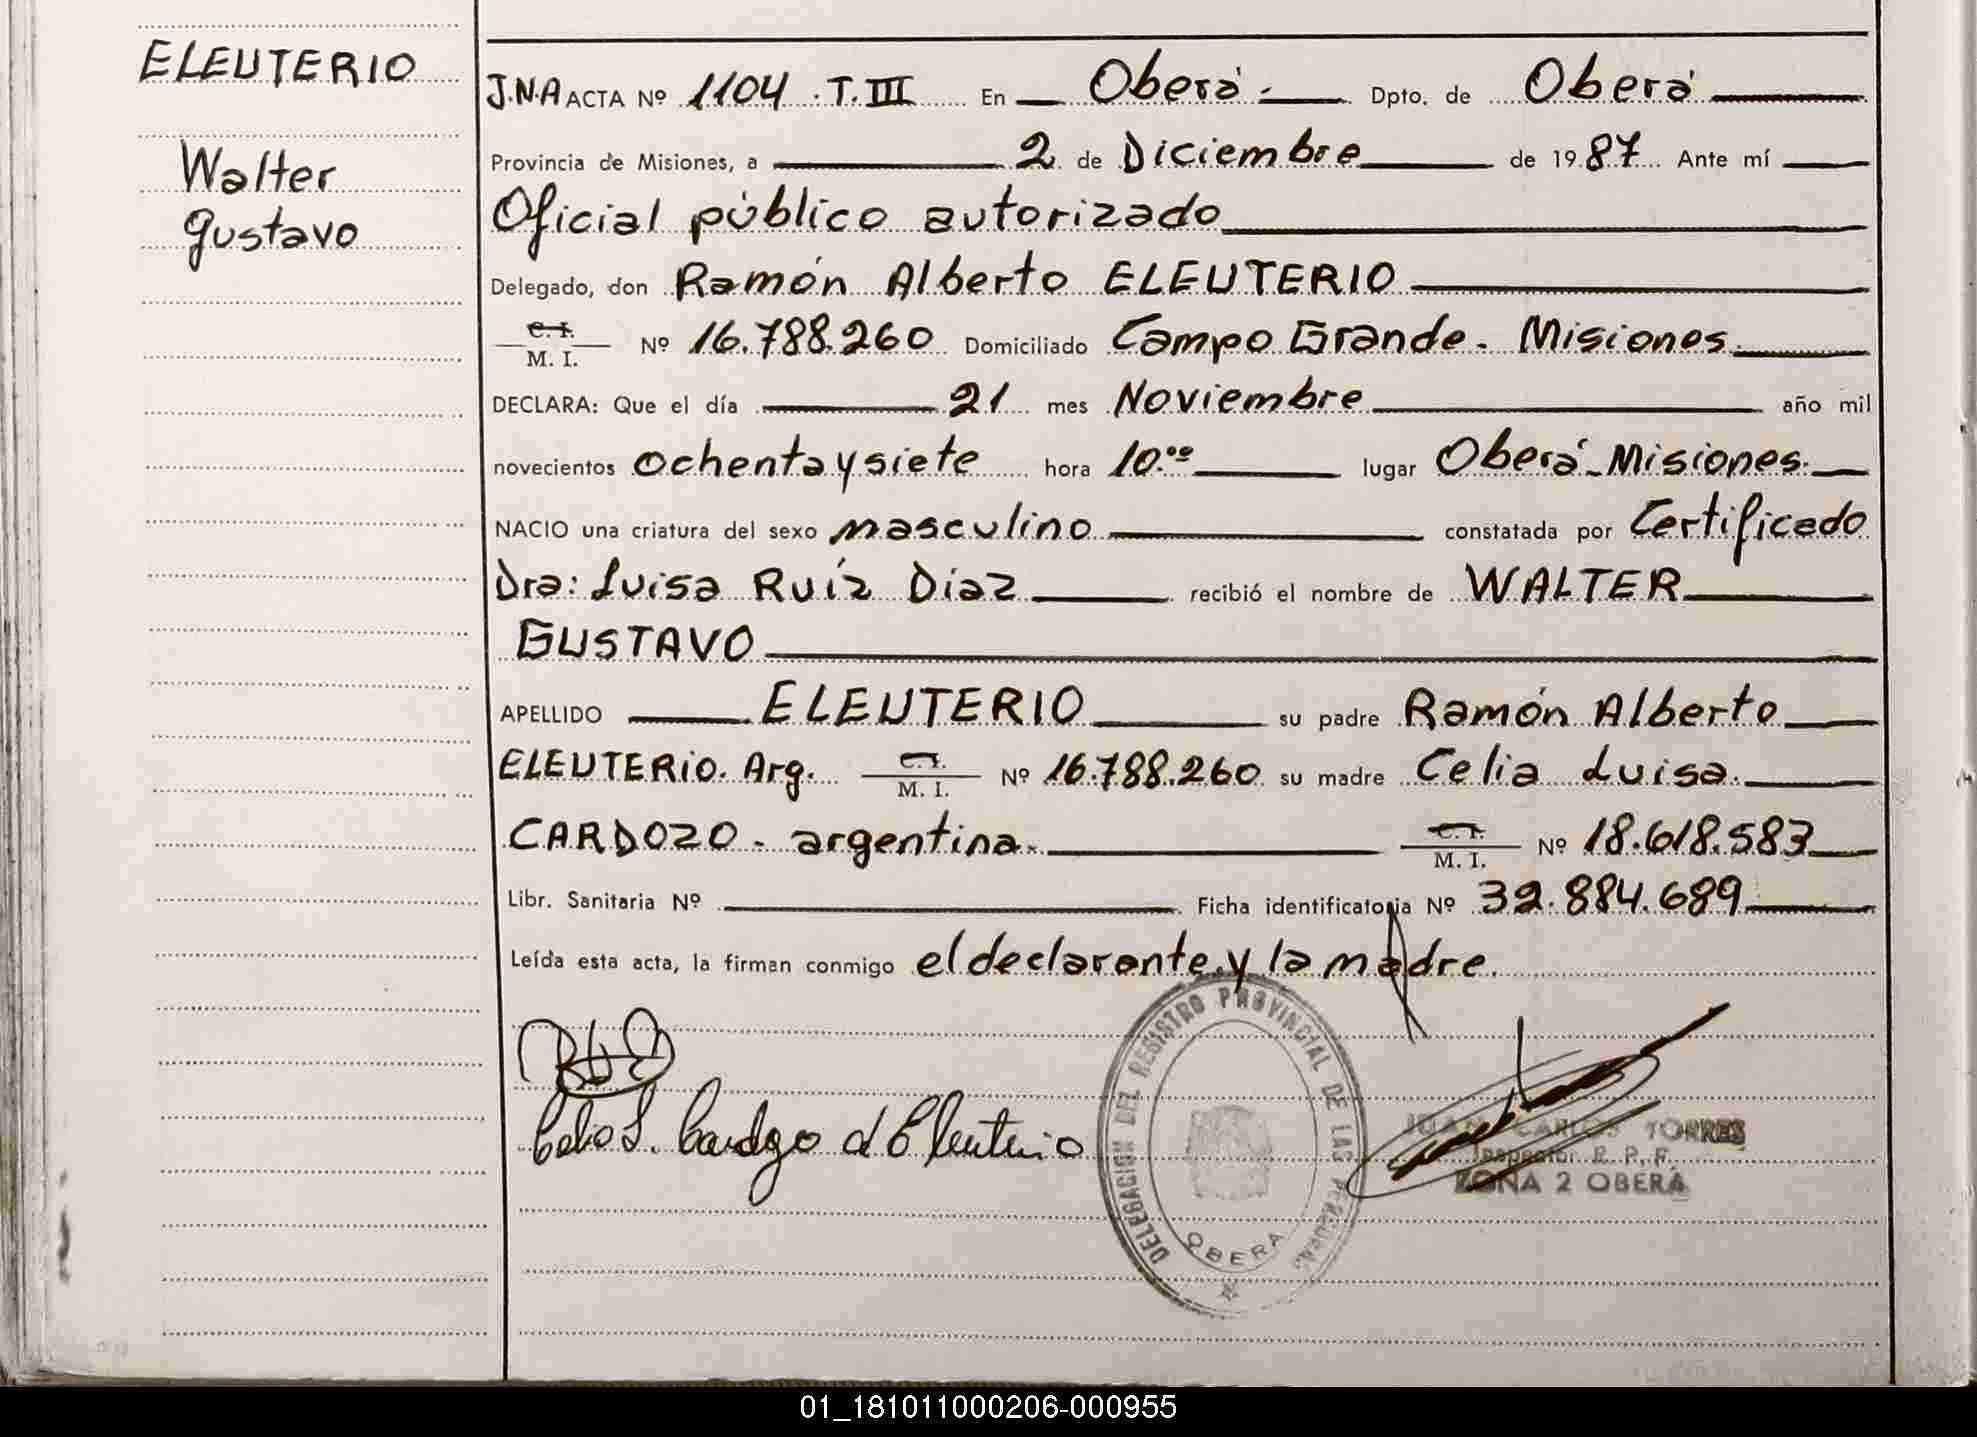 ELEUTERIO
Walter
Gustavo
J.N.A ACTA Nº 1104 . T. III En Oberá - Dpto. de Oberá
Provincia de Misiones, a 2 de Diciembre de 1987 Ante mí
Oficial público autorizado
Delegado, don Ramón Alberto ELEUTERIO
C. I.
M. I. Nº 16.788.260 Domiciliado Campo Grande - Misiones
DECLARA: Que el día 21 mes Noviembre año mil
novecientos ochenta y siete hora 10.00 lugar Oberá - Misiones.
NACIO una criatura del sexo masculino constatada por Certificado
Dra: Luisa Ruíz Diaz recibió el nombre de WALTER
GUSTAVO
APELLIDO ELEUTERIO su padre Ramón Alberto
ELEUTERIO. Arg. C. I. M. I. Nº 16.788.260 su madre Celia Luisa
CARDOZO - argentina. C. I. M. I. Nº 18.618.583
Libr. Sanitaria Nº Ficha identificatoria Nº 32.884.689
Leída esta acta, la firman conmigo el declarante y la madre.
Celia L. Cardozo d Eleuterio
DELEGACION DEL REGISTRO PROVINCIAL DE LAS PERSONAS
OBERA
JUAN CARLOS TORRES
Inspector R. P. P.
ZONA 2 OBERÁ
01_181011000206-000955